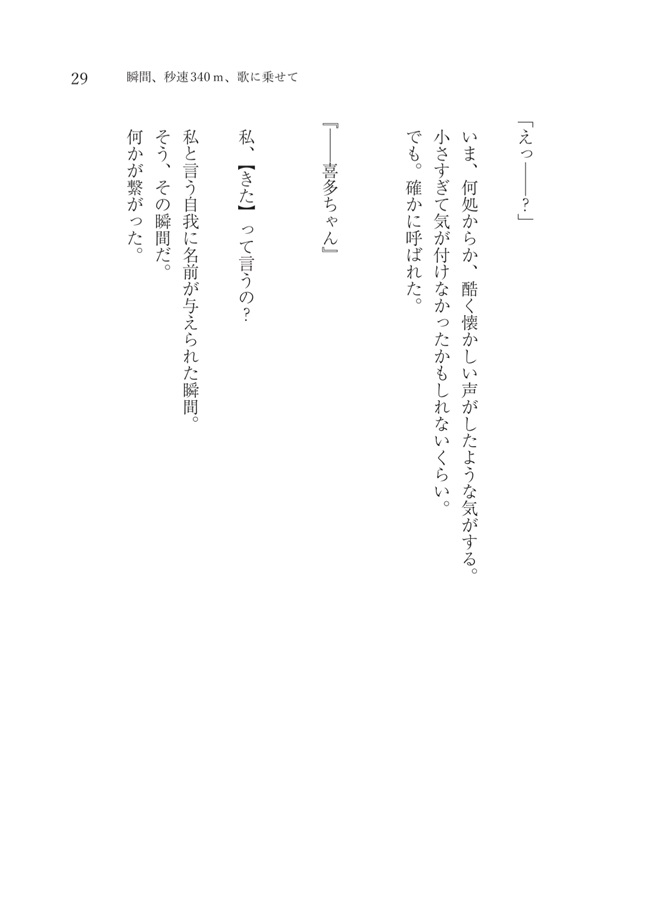 29
瞬間、秒速340ｍ、歌に乗せて
「えっ――？」
いま、何処からか、酷く懐かしい声がしたような気がする。
小さすぎて気が付けなかったかもしれないくらい。
でも。確かに呼ばれた。
『――喜多ちゃん』
私、【きた】って言うの？
私と言う自我に名前が与えられた瞬間。
そう、その瞬間だ。
何かが繋がった。